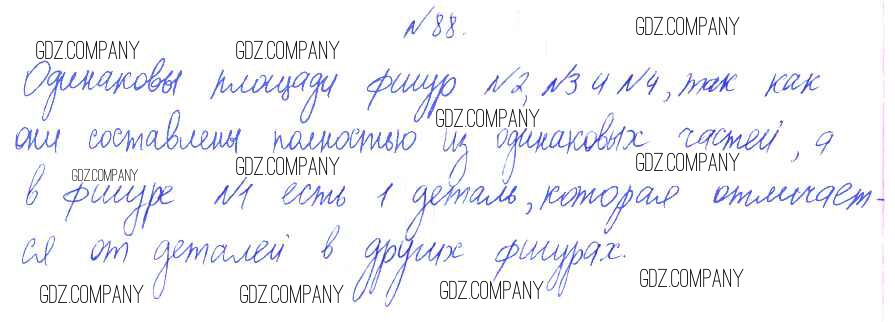 №88.
Одинаковы площади фигур №2, №3 и №4, так как
они составлены полностью из одинаковых частей, а
в фигуре №1 есть 1 деталь, которая отличает-
ся от деталей в других фигурах.
GDZ.COMPANY GDZ.COMPANY GDZ.COMPANY
GDZ.COMPANY
GDZ.COMPANY GDZ.COMPANY GDZ.COMPANY
GDZ.COMPANY GDZ.COMPANY GDZ.COMPANY GDZ.COMPANY